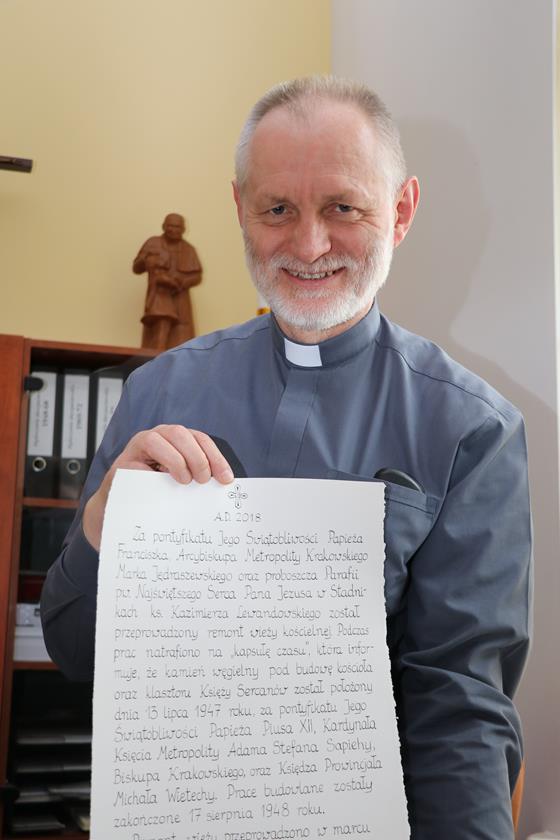 A.D. 2018
Za pontyfikatu Jego Świątobliwości Papieża
Franciszka, Arcybiskupa Metropolity Krakowskiego
Marka Jędraszewskiego oraz proboszcza Parafii
pw. Najświętszego Serca Pana Jezusa w Stadni-
kach ks. Kazimierza Lewandowskiego został
przeprowadzony remont wieży kościelnej. Podczas
prac natrafiono na „kapsułę czasu", która infor-
muje, że kamień węgielny pod budowę kościoła
oraz klasztoru Księży Sercanów został położony
dnia 13 lipca 1947 roku, za pontyfikatu Jego
Świątobliwości Papieża Piusa XII, Kardynała
Księcia Metropolity Adama Stefana Sapiehy,
Biskupa Krakowskiego, oraz Księdza Prowincjała
Michała Wietechy. Prace budowlane zostały
zakończone 17 sierpnia 1948 roku.
Remont wieży przeprowadzono w marcu